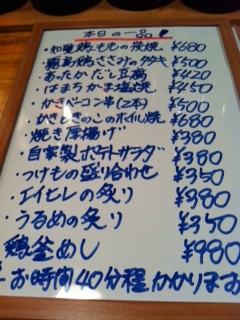 本日の一品
・知覧鶏ももの炭焼 ¥680
・鶏ささみのタタキ ¥500
・あったかだし豆腐 ¥420
・はまちかま塩焼 ¥450
・かきベーコン串(2本) ¥500
・かきときのこのホイル焼 ¥680
・焼き厚揚げ ¥380
・自家製ポテトサラダ ¥380
・つけもの盛り合わせ ¥350
・エイヒレの炙り ¥380
・うるめの炙り ¥350
鶏釜めし ¥980
お時間40分程かかります